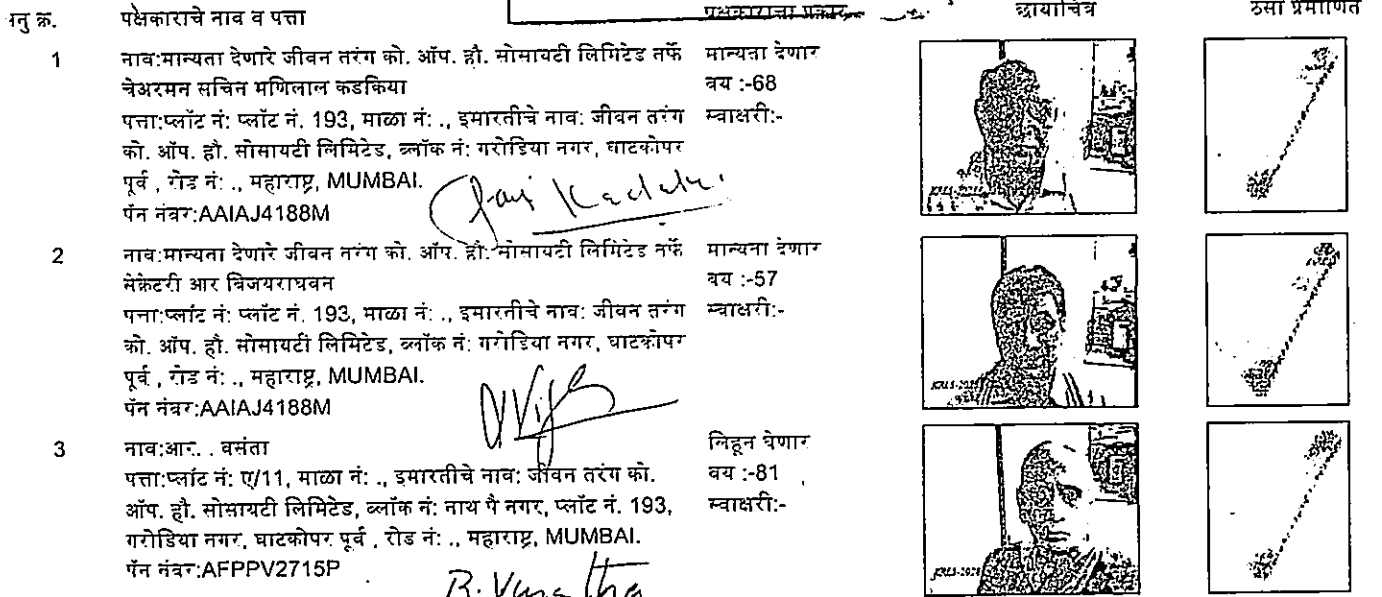 अनु क्र. पक्षकाराचे नाव व पत्ता पक्षकाराचा प्रकार छायाचित्र ठसा प्रमाणित
1 नाव:मान्यता देणारे जीवन तरंग को. ऑप. हौ. सोसायटी लिमिटेड तर्फे मान्यता देणार
चेअरमन सचिन मणिलाल कडकिया वय :-68
पत्ता:प्लॉट नं: प्लॉट नं. 193, माळा नं: ., इमारतीचे नाव: जीवन तरंग स्वाक्षरी:-
को. ऑप. हौ. सोसायटी लिमिटेड, ब्लॉक नं: गरोडिया नगर, घाटकोपर
पूर्व , रोड नं: ., महाराष्ट्र, MUMBAI.
पॅन नंबर:AAIAJ4188M
2 नाव:मान्यता देणारे जीवन तरंग को. ऑप. हौ. सोसायटी लिमिटेड तर्फे मान्यता देणार
सेक्रेटरी आर विजयराघवन वय :-57
पत्ता:प्लॉट नं: प्लॉट नं. 193, माळा नं: ., इमारतीचे नाव: जीवन तरंग स्वाक्षरी:-
को. ऑप. हौ. सोसायटी लिमिटेड, ब्लॉक नं: गरोडिया नगर, घाटकोपर
पूर्व , रोड नं: ., महाराष्ट्र, MUMBAI.
पॅन नंबर:AAIAJ4188M
3 नाव:आर. . वसंता लिहून घेणार
पत्ता:प्लॉट नं: ए/11, माळा नं: ., इमारतीचे नाव: जीवन तरंग को. वय :-81
ऑप. हौ. सोसायटी लिमिटेड, ब्लॉक नं: नाथ पै नगर, प्लॉट नं. 193, स्वाक्षरी:-
गरोडिया नगर, घाटकोपर पूर्व , रोड नं: ., महाराष्ट्र, MUMBAI.
पॅन नंबर:AFPPV2715P
R. Vasantha